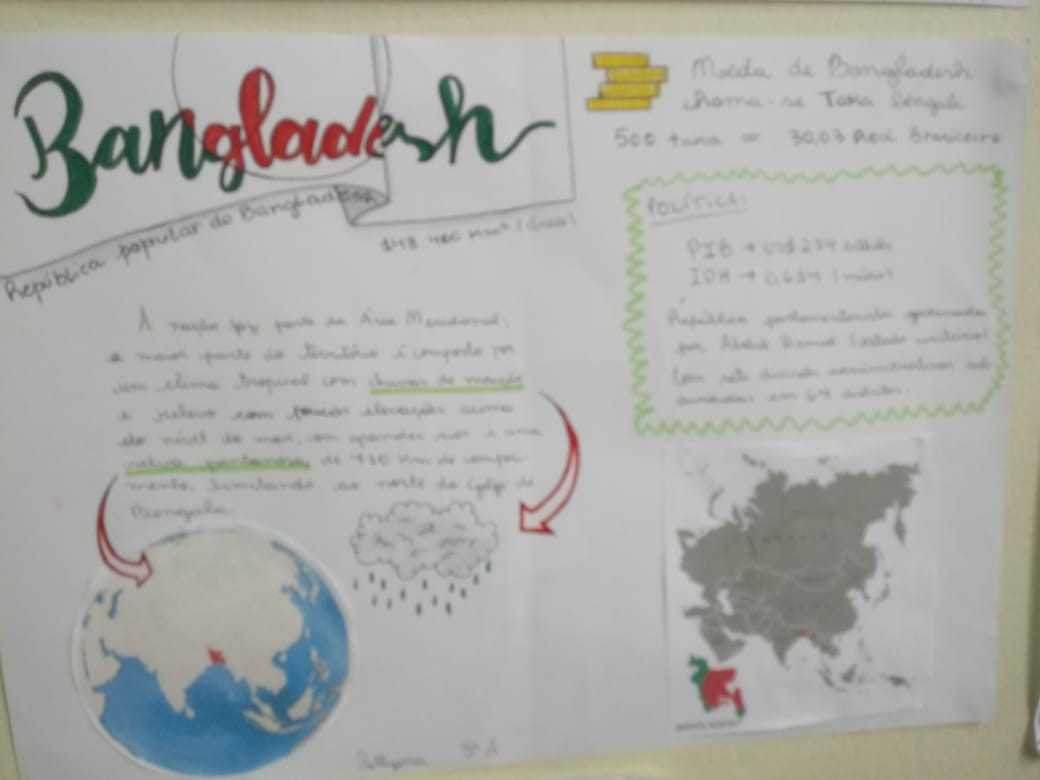 Bangladesh
República popular do Bangladesh
148.460 Km² (área)
Moeda de Bangladesh
chama-se Taka bengali
500 taka = 30,03 Real Brasileiro
POLÍTICA:
PIB → US$ 274
IDH → 0,614 (médio)
República parlamentarista governada
por Abdul Hamid (estado unitário)
Com sete divisões administrativas sub
divididas em 64 distritos.
A nação faz parte da Ásia Meridional;
a maior parte do território é composto por
um clima tropical com chuvas de monção
e relevo com poucas elevações acima
do nível do mar, com grandes rios e uma
pantanosa de 710 Km de compri-
mento, limitando ao norte do Golfo de
Bengala
5º A